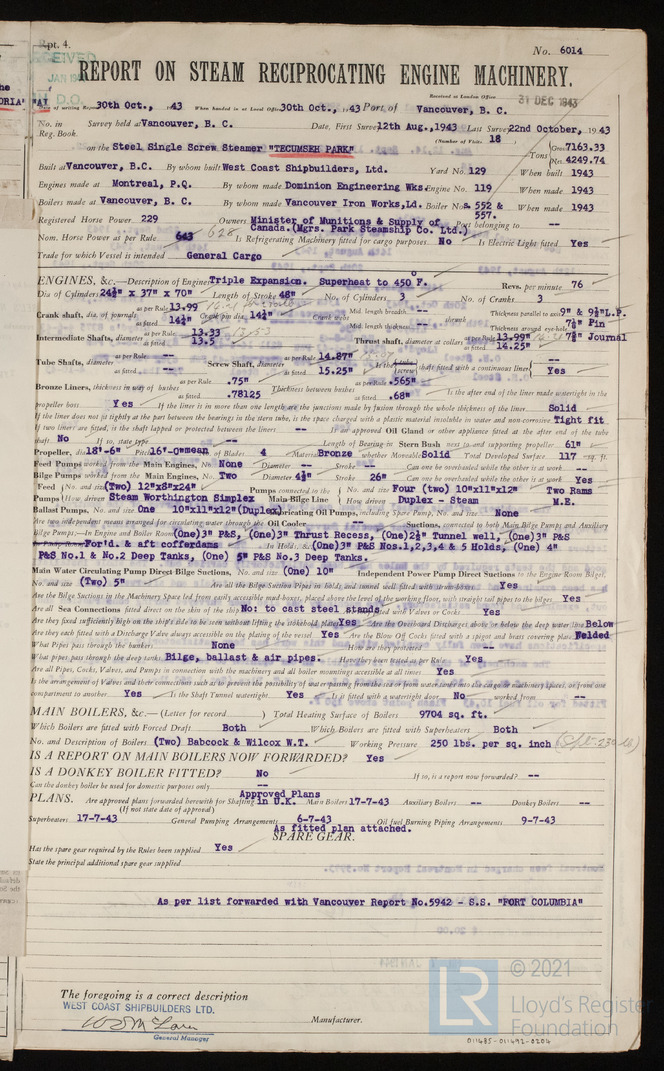 Rpt. 4.
No. 6014
RECEIVED
JAN 194
D.O.
REPORT ON STEAM RECIPROCATING ENGINE MACHINERY.
Received at London Office 31 DEC 1943
of writing Report 30th Oct., 1943 When handed in at Local Office 30th Oct., 1943 Port of Vancouver, B. C.
No. in Reg. Book. Survey held at Vancouver, B. C. Date, First Survey 12th Aug., 1943 Last Survey 22nd October, 1943
(Number of Visits 18
on the Steel Single Screw Steamer "TECUMSEH PARK" Tons Gross 7163.33 Net 4249.74
Built at Vancouver, B.C. By whom built West Coast Shipbuilders, Ltd. Yard No. 129 When built 1943
Engines made at Montreal, P.Q. By whom made Dominion Engineering Wks. Engine No. 119 When made 1943
Boilers made at Vancouver, B. C. By whom made Vancouver Iron Works, Ld. Boiler Nos. 552 & 557. When made 1943
Registered Horse Power 229 Owners Minister of Munitions & Supply of Canada.(Mgrs. Park Steamship Co. Ltd.) Port belonging to --
Nom. Horse Power as per Rule 643 628 Is Refrigerating Machinery fitted for cargo purposes. No Is Electric Light fitted Yes
Trade for which Vessel is intended General Cargo
ENGINES, &c.—Description of Engines Triple Expansion. Superheat to 450°F. Revs. per minute 76
Dia of Cylinders 24½" x 37" x 70" Length of Stroke 48" No. of Cylinders 3 No. of Cranks 3
Crank shaft, dia. of journals as per Rule 13.99 as fitted 14¼" Crank pin dia. 14¼" Crank webs Mid. length breadth -- Mid. length thickness -- shrunk Thickness parallel to axis 9" & 9½"L.P. Thickness around eye-hole 7½" Pin 7⅜" Journal
Intermediate Shafts, diameter as per Rule 13.33 as fitted 13.5 Thrust shaft, diameter at collars as per Rule 13.99" as fitted 14.25"
Tube Shafts, diameter as per Rule -- as fitted -- Screw Shaft, diameter as per Rule 14.87" as fitted 15.25" Is the screw shaft fitted with a continuous liner Yes
Bronze Liners, thickness in way of bushes as per Rule .75" as fitted .78125 Thickness between bushes as per Rule .565" as fitted .68" Is the after end of the liner made watertight in the
propeller boss Yes If the liner is in more than one length are the junctions made by fusion through the whole thickness of the liner Solid
If the liner does not fit tightly at the part between the bearings in the stern tube, is the space charged with a plastic material insoluble in water and non-corrosive Tight fit
If two liners are fitted, is the shaft lapped or protected between the liners -- Is an approved Oil Gland or other appliance fitted at the after end of the tube
shaft. No If so, state type -- Length of Bearing in Stern Bush next to and supporting propeller 61"
Propeller, dia 18'-6" Pitch 16'-0"mean No. of Blades 4 Material Bronze whether Moveable Solid Total Developed Surface 117 sq. ft.
Feed Pumps worked from the Main Engines, No. None Diameter -- Stroke -- Can one be overhauled while the other is at work --
Bilge Pumps worked from the Main Engines, No. Two Diameter 4½" Stroke 26" Can one be overhauled while the other is at work Yes
Feed Pumps No. and size (Two) 10"x8"x24" How driven Steam Worthington Simplex Pumps connected to the Main Bilge Line No. and size Four (two) 10"x11"x12" Two Rams How driven Duplex - Steam M.E.
Ballast Pumps, No. and size One 10"x11"x12"(Duplex) Lubricating Oil Pumps, including Spare Pump, No. and size None
Are two independent means arranged for circulating water through the Oil Cooler -- Suctions, connected to both Main Bilge Pumps and Auxiliary
Bilge Pumps:—In Engine and Boiler Room (One)3" P&S, (One)3" Thrust Recess, (One)2½" Tunnel well, (One)3" P&S
For'd. & aft cofferdams In Holds, &c. (One)3" P&S Nos.1,2,3,4 & 5 Holds, (One) 4"
P&S No.1 & No.2 Deep Tanks, (One) 5" P&S No.3 Deep Tanks.
Main Water Circulating Pump Direct Bilge Suctions, No. and size (One) 10" Independent Power Pump Direct Suctions to the Engine Room Bilges,
No. and size (Two) 5" Are all the Bilge Suction Pipes in holds and tunnel well fitted with strum-boxes Yes
Are the Bilge Suctions in the Machinery Space led from easily accessible mud-boxes, placed above the level of the working floor, with straight tail pipes to the bilges Yes
Are all Sea Connections fitted direct on the skin of the ship No: to cast steel stands. fitted with Valves or Cocks Yes
Are they fixed sufficiently high on the ship's side to be seen without lifting the stokehold plates Yes Are the Overboard Discharges above or below the deep water line Below
Are they each fitted with a Discharge Valve always accessible on the plating of the vessel Yes Are the Blow Off Cocks fitted with a spigot and brass covering plate Welded
What Pipes pass through the bunkers None How are they protected --
What pipes pass through the deep tanks Bilge, ballast & air pipes. Have they been tested as per Rule Yes
Are all Pipes, Cocks, Valves, and Pumps in connection with the machinery and all boiler mountings accessible at all times Yes
Is the arrangement of Valves and their connections such as to prevent the possibility of water passing from the sea or from water tanks into the cargo or machinery spaces, or from one
compartment to another Yes Is the Shaft Tunnel watertight Yes Is it fitted with a watertight door No worked from --
MAIN BOILERS, &c.—(Letter for record ) Total Heating Surface of Boilers 9704 sq. ft.
Which Boilers are fitted with Forced Draft Both Which Boilers are fitted with Superheaters Both
No. and Description of Boilers (Two) Babcock & Wilcox W.T. Working Pressure 250 lbs. per sq. inch
IS A REPORT ON MAIN BOILERS NOW FORWARDED? Yes
IS A DONKEY BOILER FITTED? No If so, is a report now forwarded? --
Can the donkey boiler be used for domestic purposes only --
PLANS. Are approved plans forwarded herewith for Shafting Approved Plans in U.K. Main Boilers 17-7-43 Auxiliary Boilers -- Donkey Boilers --
(If not state date of approval)
Superheaters 17-7-43 General Pumping Arrangements 6-7-43 Oil fuel Burning Piping Arrangements 9-7-43
As fitted plan attached.
SPARE GEAR.
Has the spare gear required by the Rules been supplied Yes
State the principal additional spare gear supplied
As per list forwarded with Vancouver Report No.5942 - S.S. "FORT COLUMBIA"
The foregoing is a correct description
WEST COAST SHIPBUILDERS LTD.
General Manager
Manufacturer.
LR © 2021
Lloyd's Register
Foundation
011485-011492-0206